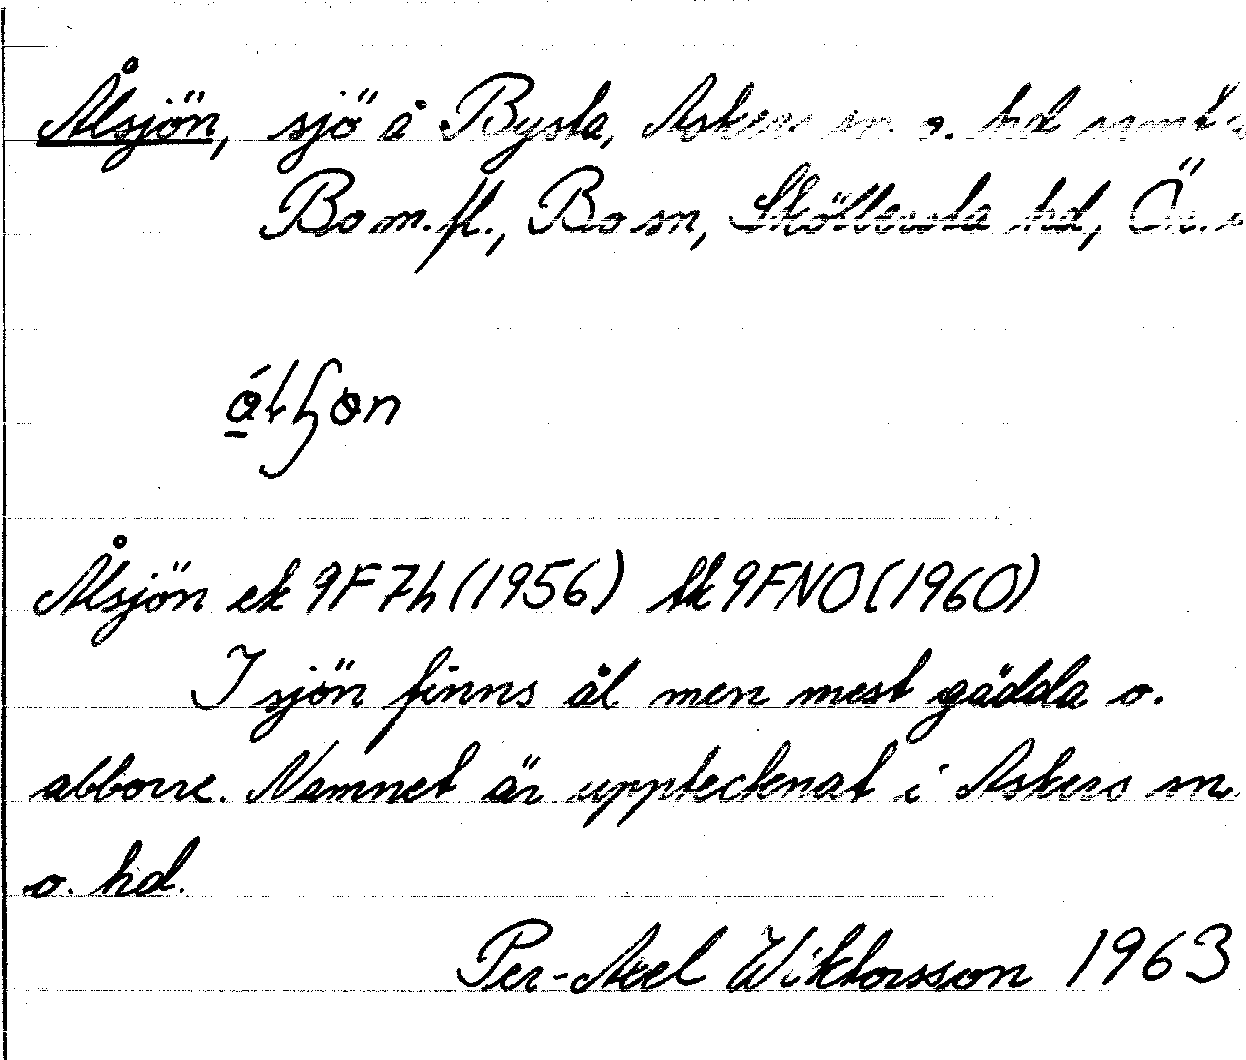 Ålsjön, sjö å Bysta, Askers sn o. hd samt å
Bo m.fl., Bo sn, Sköllersta hd, Ör.
Ålsjön ek 9F7h (1956) tk 9FNO (1960)
I sjön finns ål men mest gädda o.
abborre. Namnet är upptecknat i Askers sn.
o. hd.
Per-Axel Wiktorsson 1963